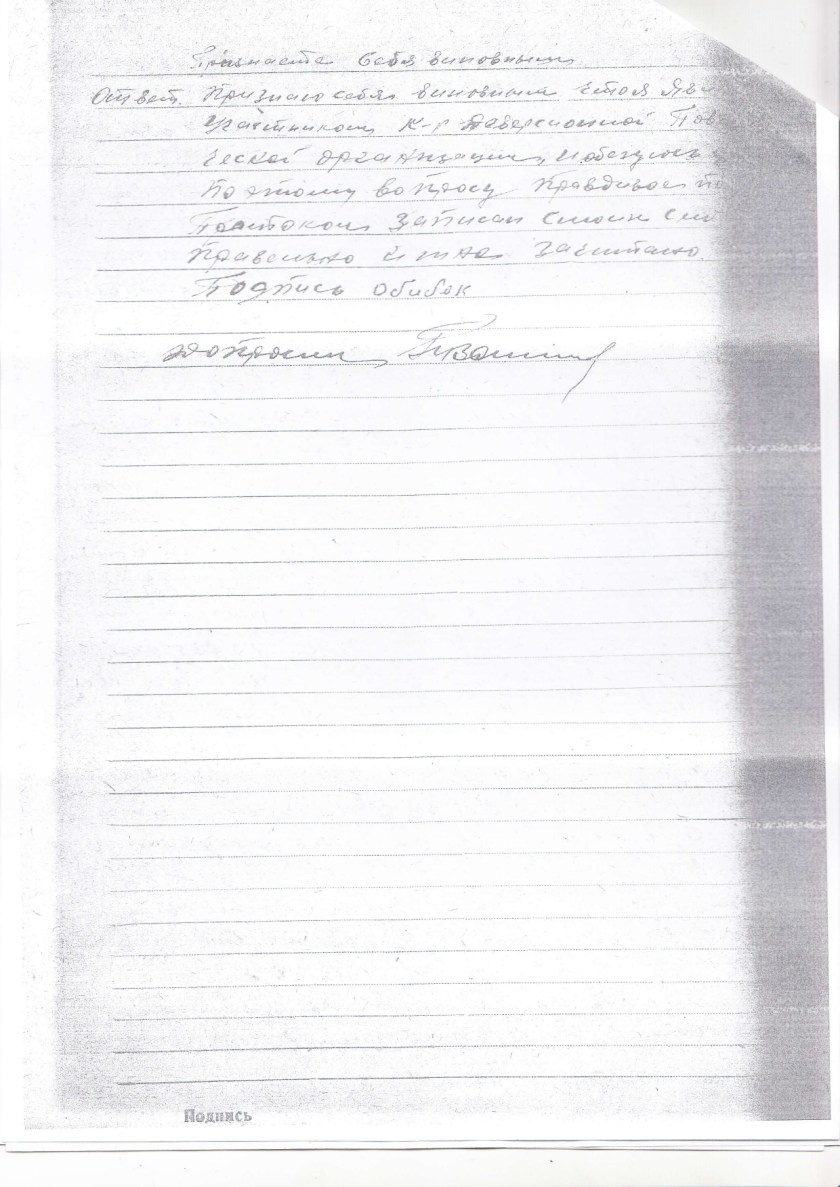 Признаете себя виновным
Ответ. Признаю себя виновным что я яви
участником к-р диверсионной Пов
ческой организации, и обязуюсь
По этому вопросу правдивое по
Протокол записан с моих сло
правильно и мне зачитано.
Подпись Обибок
допросил
Подпись